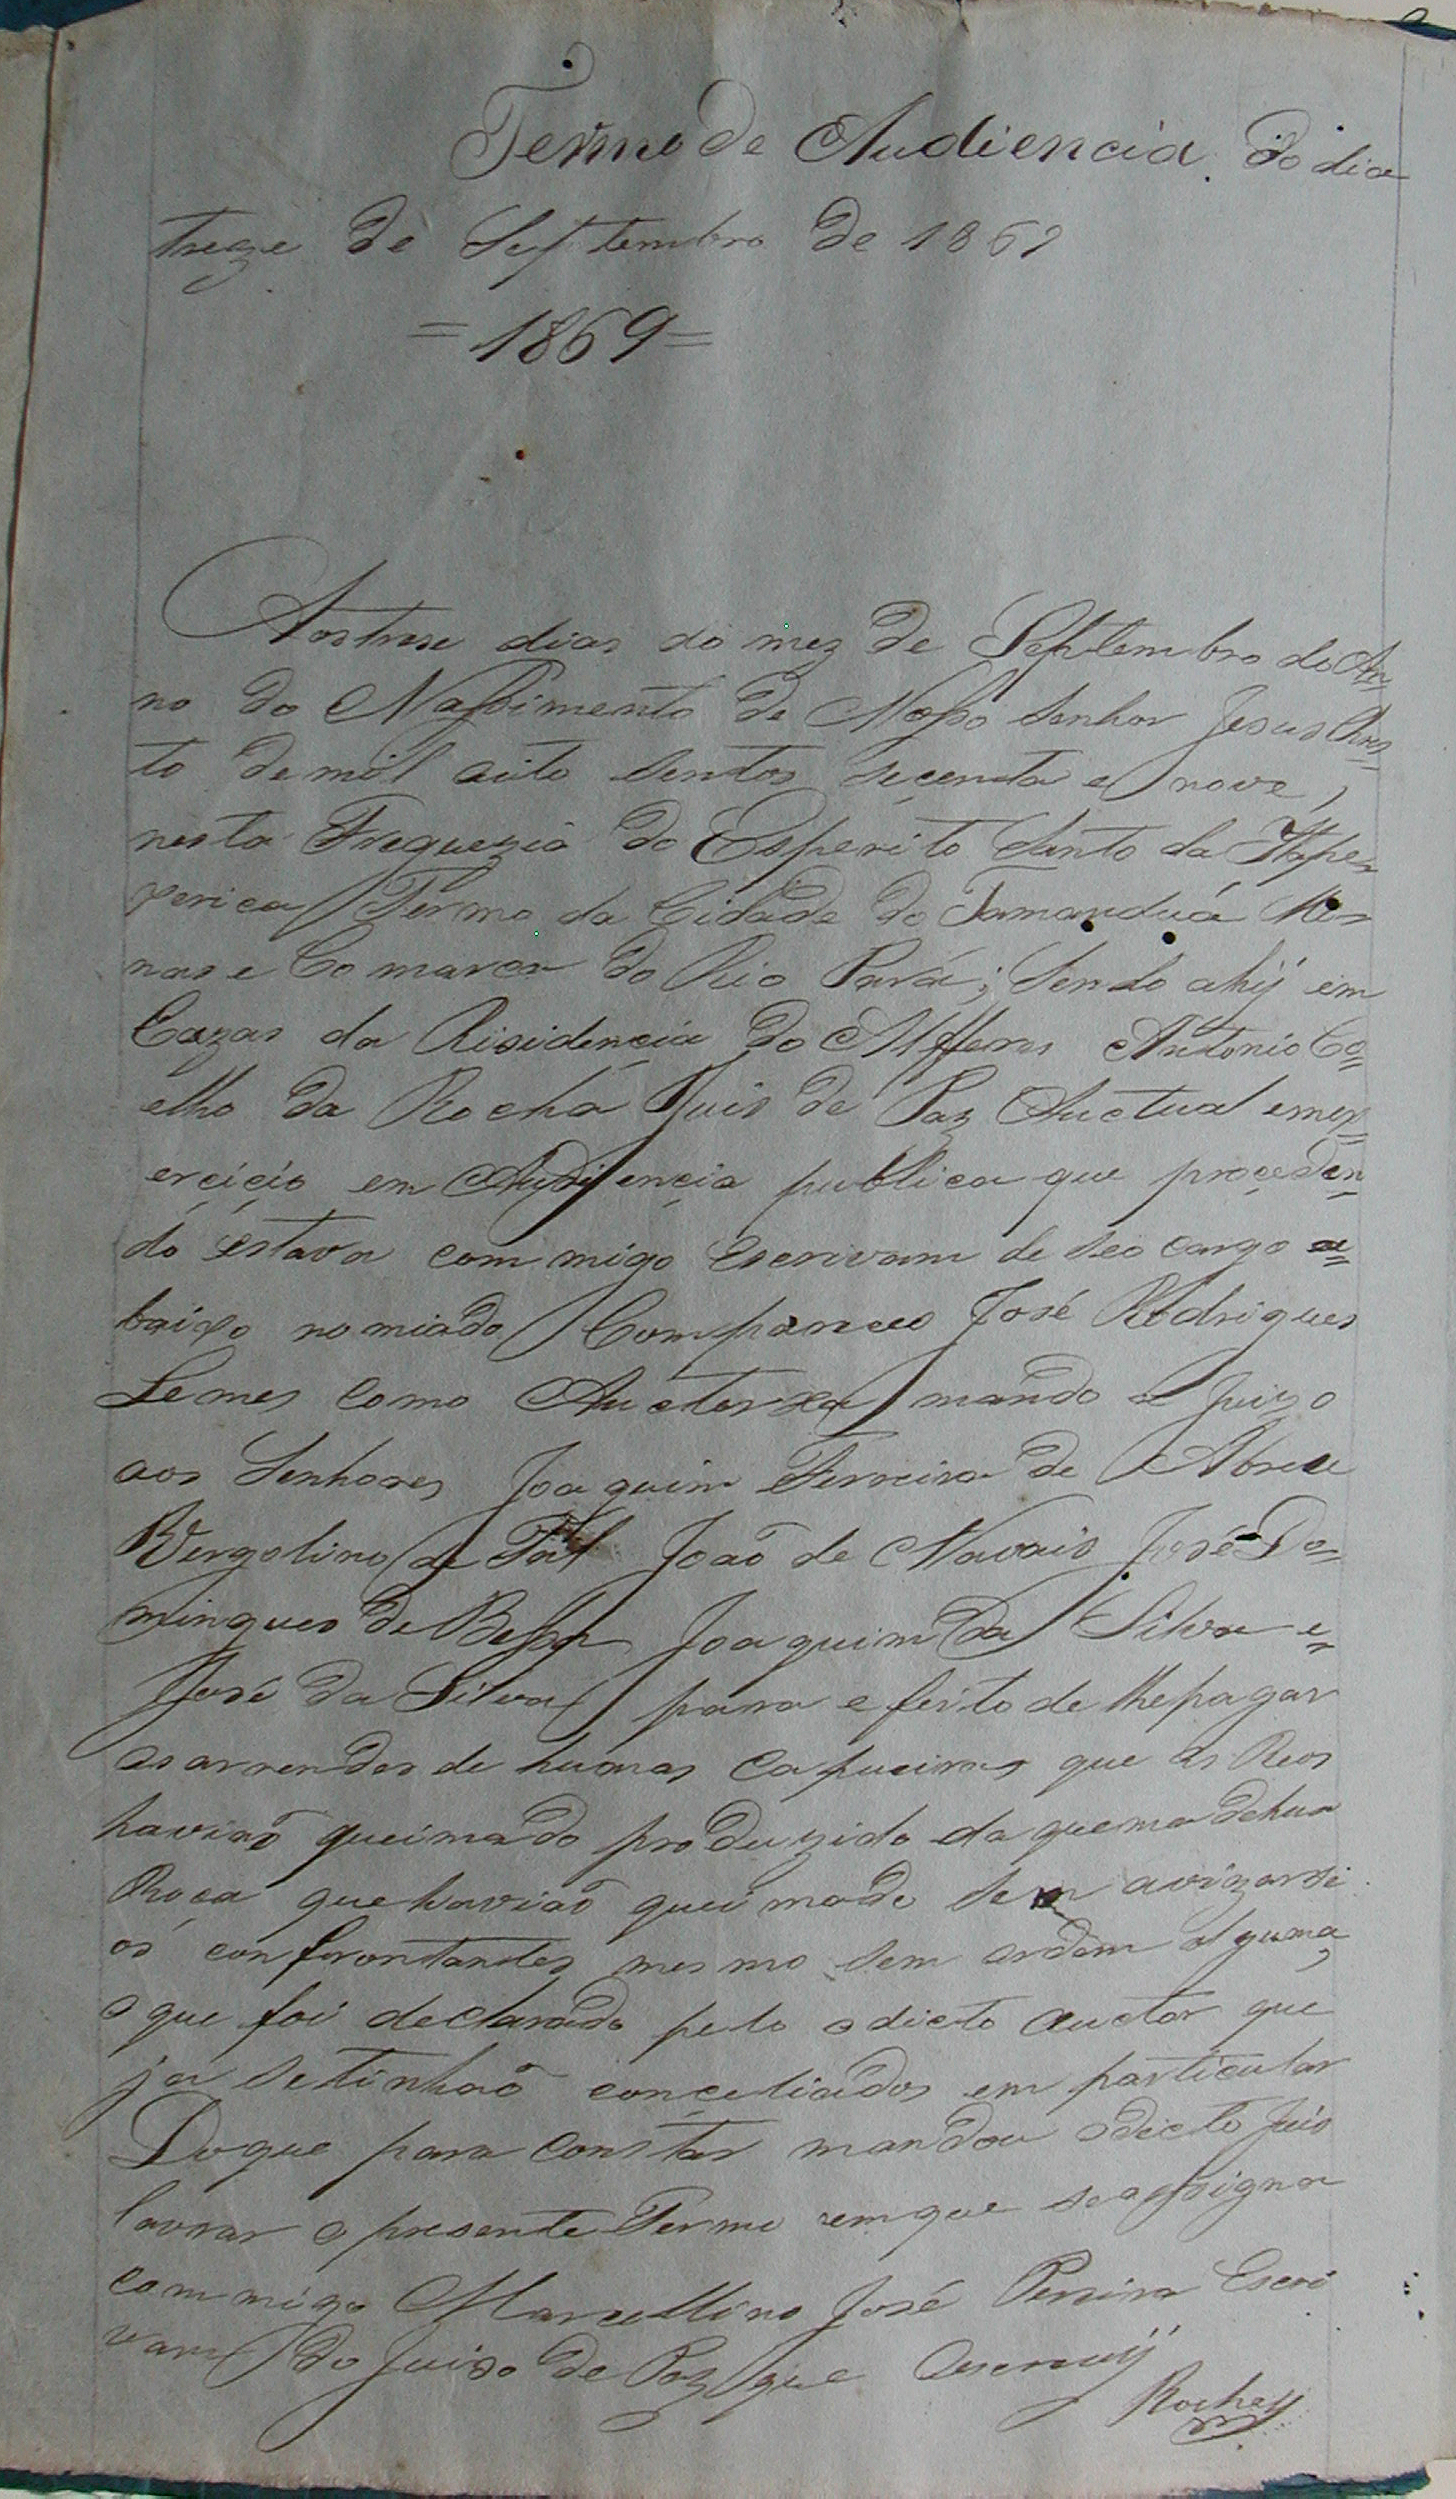 Termo de Audiencia do dia
treze de Septembro de 1869
=1869=
Aos trese dias do mez de Septembro do An
no do Nassimento de Nosso Senhor Jesus Chris=
to de mil oito sentos secenta e nove,
nesta Freguezia do Esperito Santo da Itape
serica Termo da Cidade do Tamanduá Mi
nas e Comarca do Rio Pará; Sendo ahÿ em
Cazas da Risidencia do Alfferes Antonio Co=
elho da Rocha Juis de Paz Auctual em ex=
ercicio em Audiencia publica que proceden=
do estava com migo Escrivam de seo cargo a=
baixo nomiado Compareceo José Rodrigues
Lemes como Auctor mando a Juizo
aos Senhores Joaquim Ferreira de Abreu
Vergolino de Tal João de Navais José Do=
mingues de Bessa Joaquim da Silva e=
José da Silva para efeito de lhe pagar
os arrendos de humas Capueiras que os Reos
havião queimado produzido da quema de hua
Roça que havião queimado sem avizar si
os confrontantes mesmo sem ordem alguma,
o que foi declarado pelo o dicto auctor que
ja se tinhão conceliados em particular
Do que para constar mandou o dicto Juis
lavrar o presente Termo em que se assigna
com migo Marcellino José Pereira Escri
vam do Juizo de Paz que Escrevÿ
Rocha